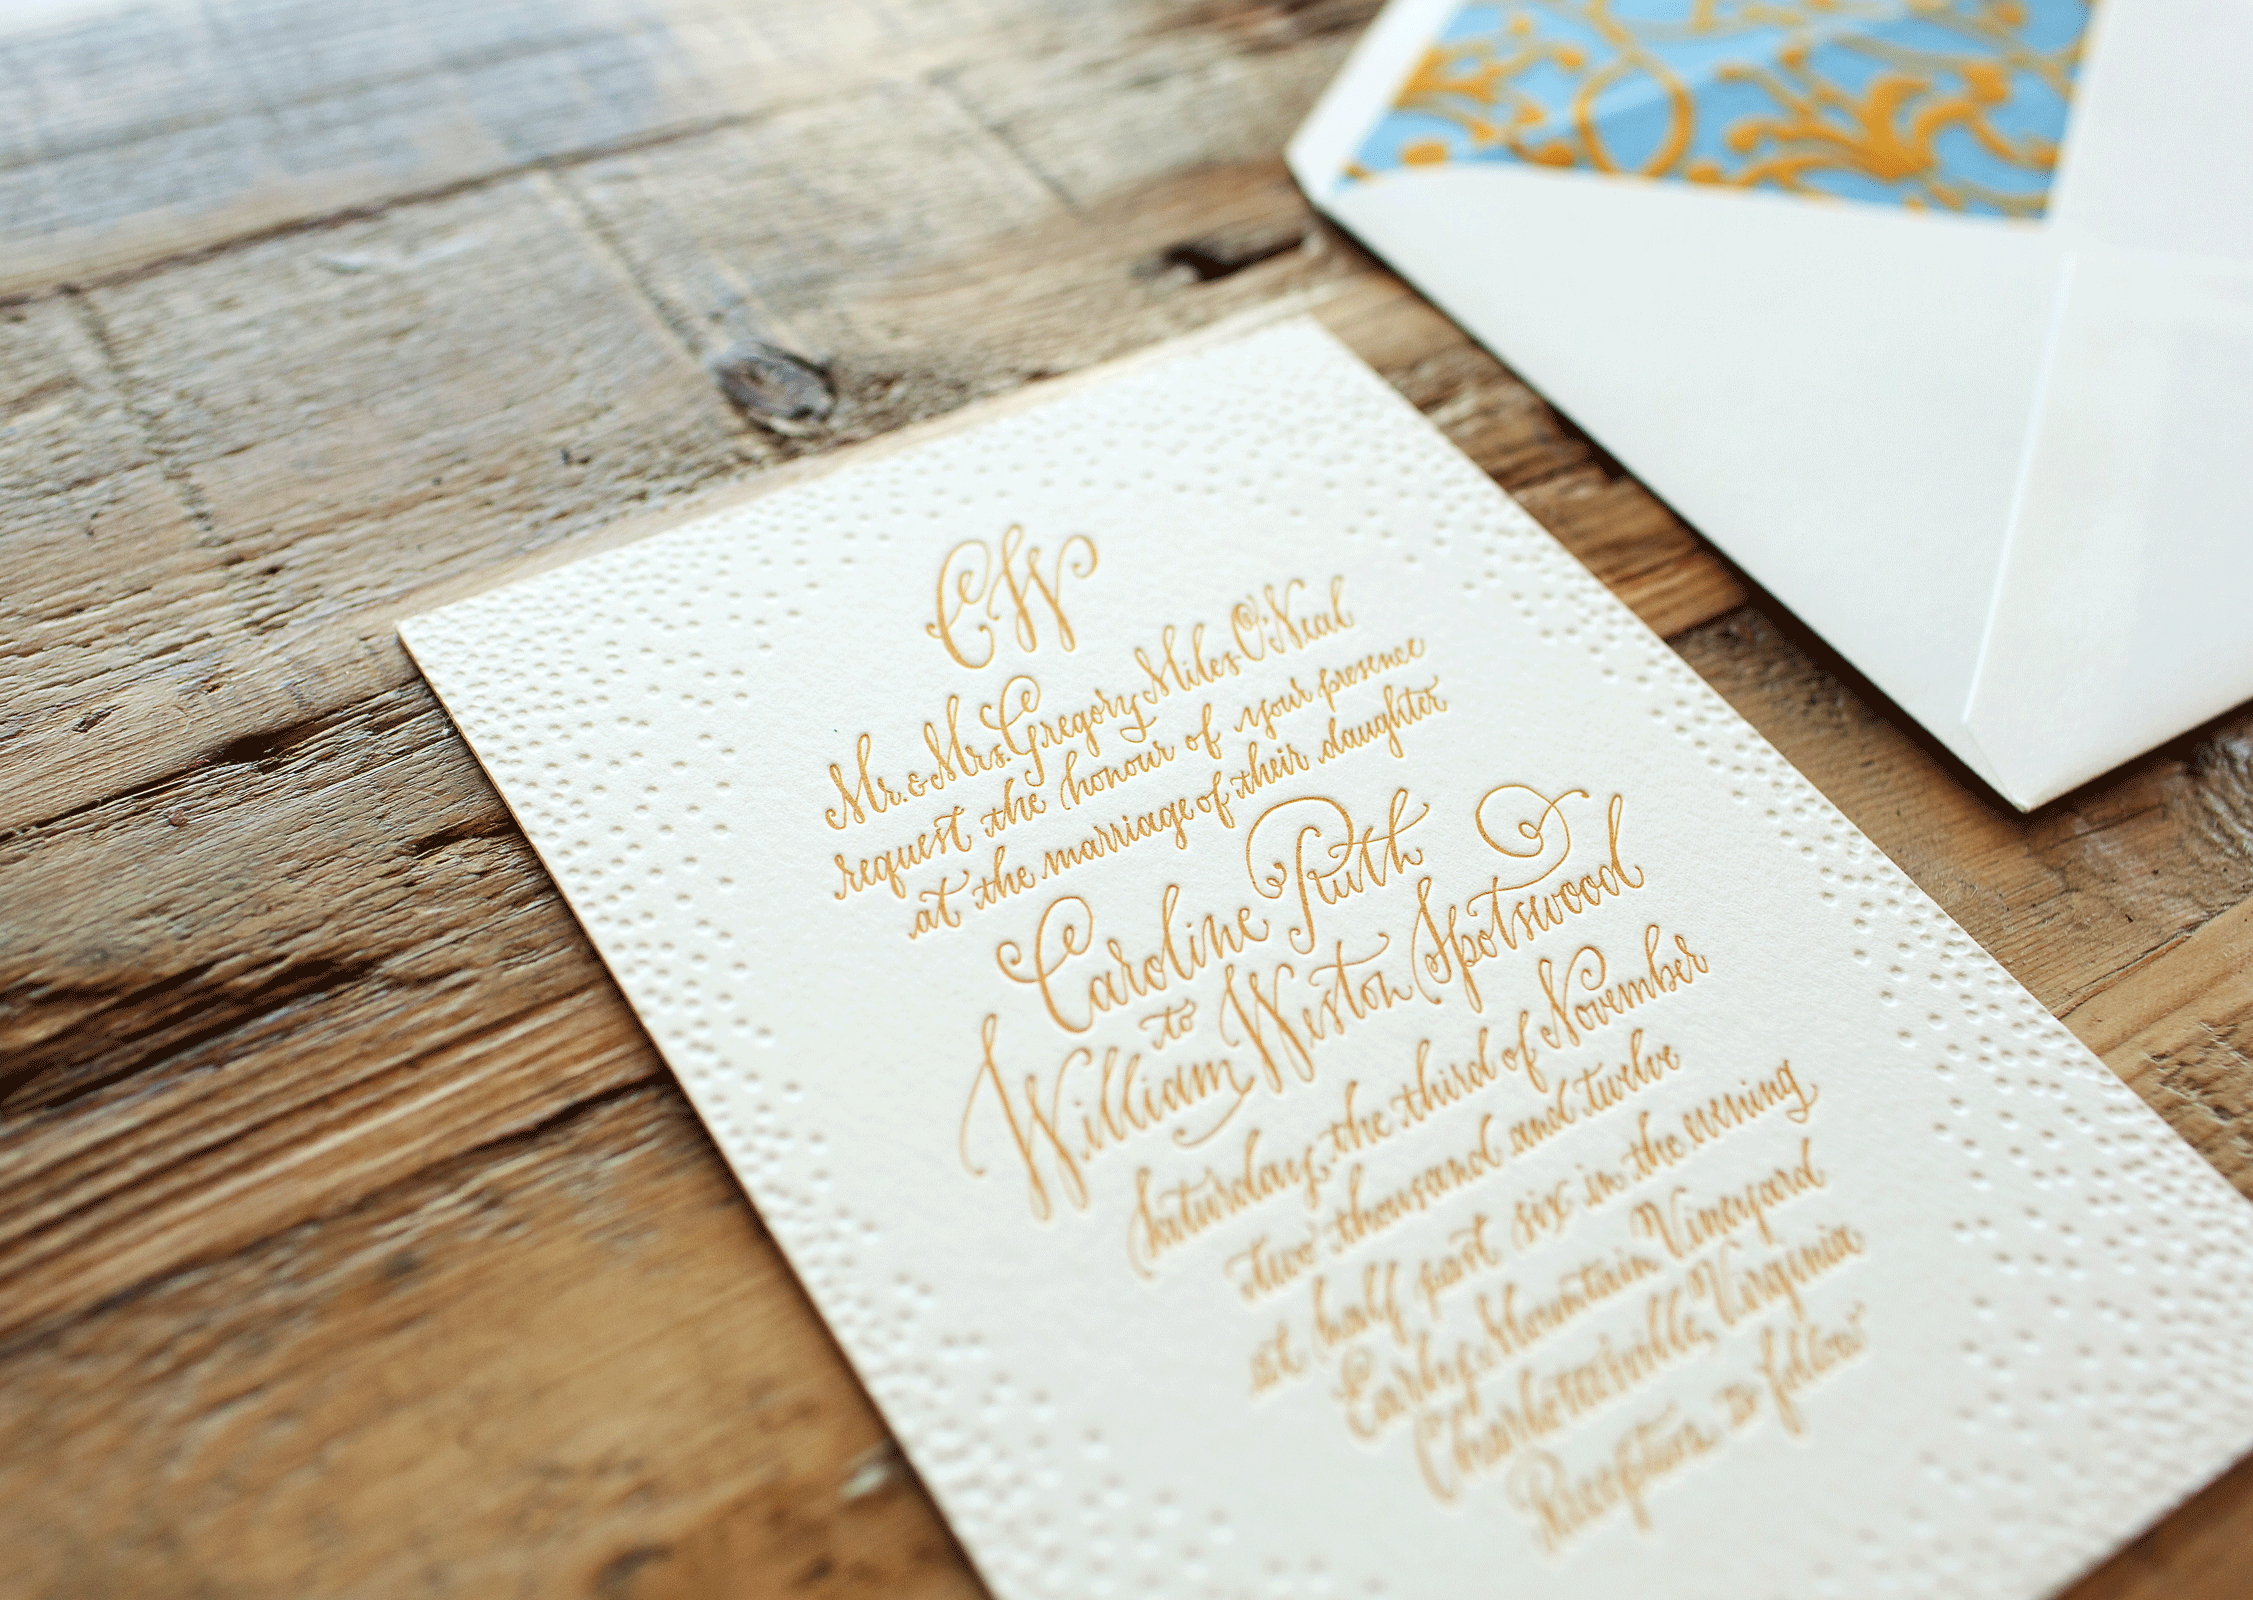 CW
Mr. & Mrs. Gregory Miles O'Neal
request the honour of your presence
at the marriage of their daughter
Caroline Ruth
to
William Weston Spotswood
Saturday, the third of November
two thousand and twelve
at half past six in the evening
Earlys Mountain Vineyard
Charlottesville, Virginia
Reception to follow